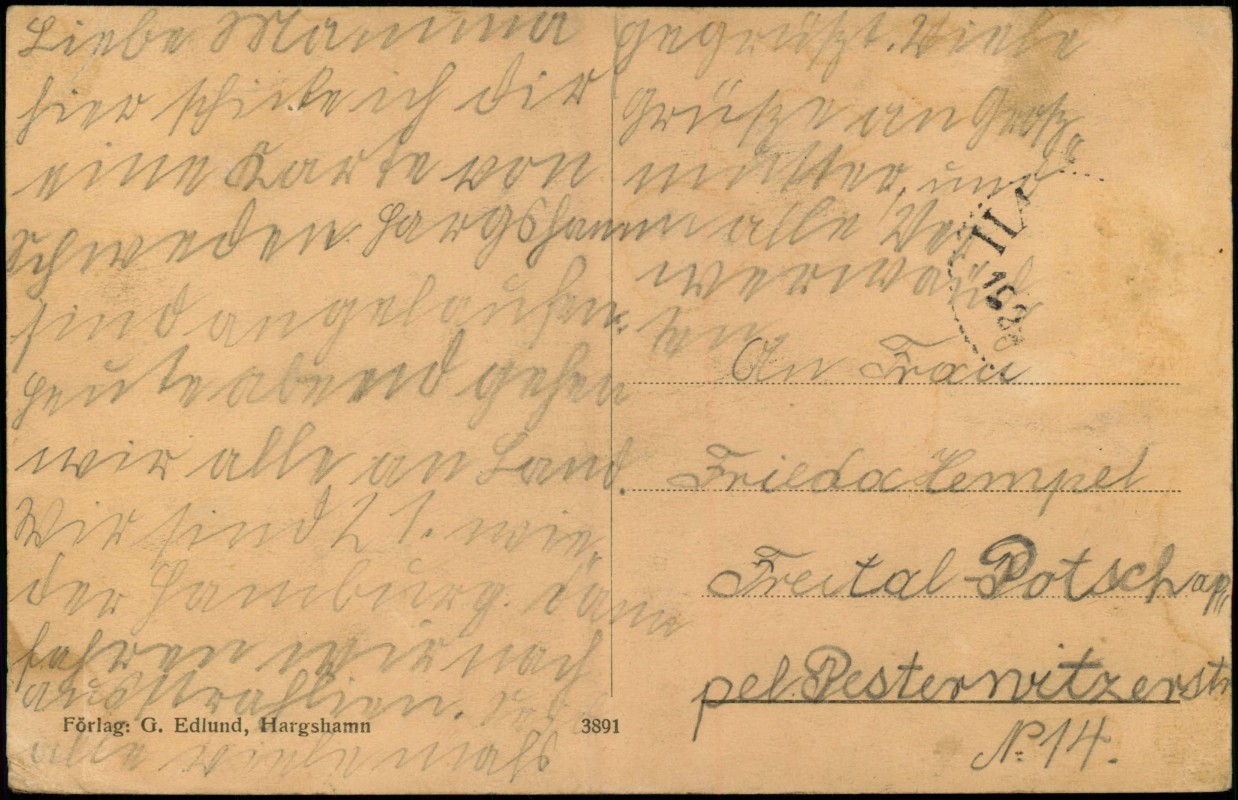 Liebe Mamma
hier schicke ich dir
eine Karte von
Schweden. Hargshamn
sind angelaufen.
heute abend gehen
wir alle an Land.
Wir sind 21. wie-
der Hamburg. dann
fahren wir nach
australien.
alle
gegrüßt. Viele
Grüße an Groß
mutter, und
alle
ten
An Frau
Frieda Hempel
Freital-Potschap
pel. Pesterwitzerstr
No 14.
Förlag: G. Edlund, Hargshamn
3891
192